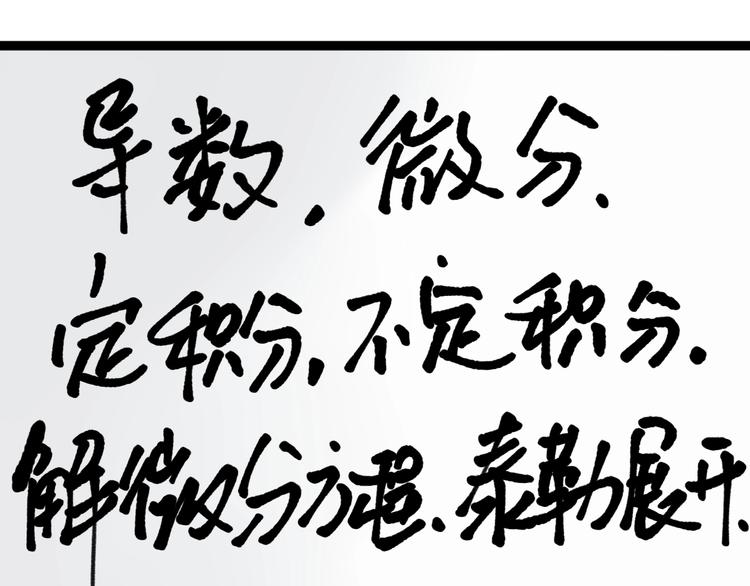 导数，微分、
定积分，不定积分.
解微分方程、泰勒展开.